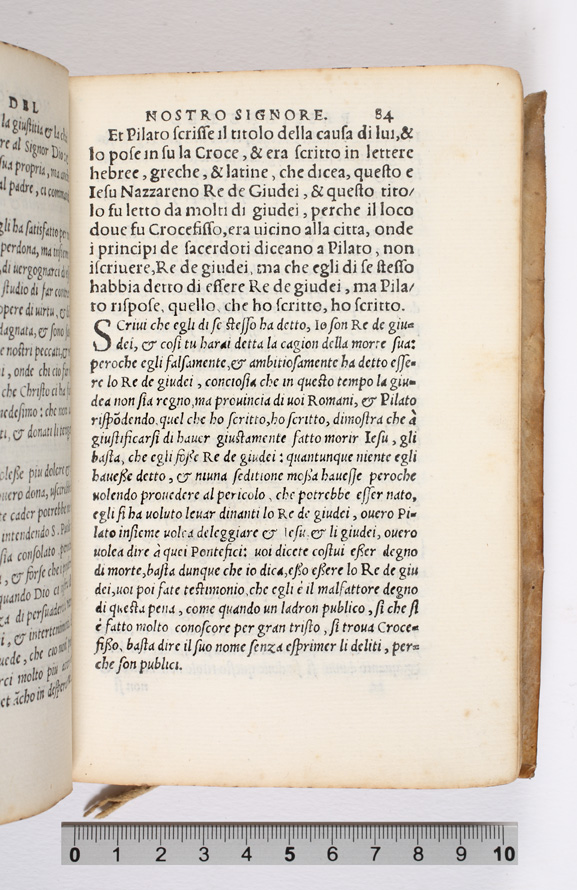 DEL
la giustitia & la che
re al Signor Dio
sua propria, ma
al padre, ci
gli ha satisfatto
perdona, ma
di uergognarci
studio di far
opere di uirtu, &
dagnata, & sono
e nostri peccati, &
i, onde chi cio
che Christo ci ha
uedesimo: che non
ti, & donati li
cleße piu dolere
ouero dona,
te cader potrebbe
intendendo S.
sia consolato
, & forse che
quando Dio ci
za di persuaderci
i, & intertenendo
uede, che cio
rci molto piu
et ācho in
NOSTRO SIGNORE. 84
Et Pilato scrisse il titolo della causa di lui,&
lo pose in su la Croce, & era scritto in lettere
hebree, greche, & latine, che dicea, questo e
Iesu Nazzareno Re de Giudei, & questo tito/
lo fu letto da molti di giudei, perche il loco
doue fu Crocefisso, era uicino alla citta, onde
i principi de sacerdoti diceano a Pilato, non
iscriuere, Re de giudei, ma che egli di se stesso
habbia detto di essere Re de giudei, ma Pila/
to rispose, quello, che ho scritto, ho scritto.
SCriui che egli di se stesso ha detto, Io son Re de giu=
dei, & cosi tu harai detta la cagion della morte sua:
peroche egli falsamente, & ambitiosamente ha detto esse=
re lo Re de giudei, conciosia che in questo tempo la giu=
dea non sia regno, ma prouincia di uoi Romani, & Pilato
rispōdendo, quel che ho scritto, ho scritto, dimostra che à
giustificarsi di hauer giustamente fatto morir Iesu, gli
basta, che egli foße Re de giudei: quantunque niente egli
haueße detto, & niuna seditione moßa hauesse peroche
uolendo prouedere al pericolo, che potrebbe esser nato,
egli si ha uoluto leuar dinanti lo Re de giudei, ouero Pi=
lato insieme uolea deleggiare & Iesu, & li giudei, ouero
uolea dire à quei Pontefici: uoi dicete costui eßer degno
di morte, basta dunque che io dica, eßo eßere lo Re de giu
dei, uoi poi fate testimonio, che egli è il malfattore degno
di questa pena, come quando un ladron publico, si che si
è fatto molto conoscere per gran tristo, si troua Croce=
fißo, basta dire il suo nome senza esprimer li deliti, per=
che son publici.
0 1 2 3 4 5 6 7 8 9 10